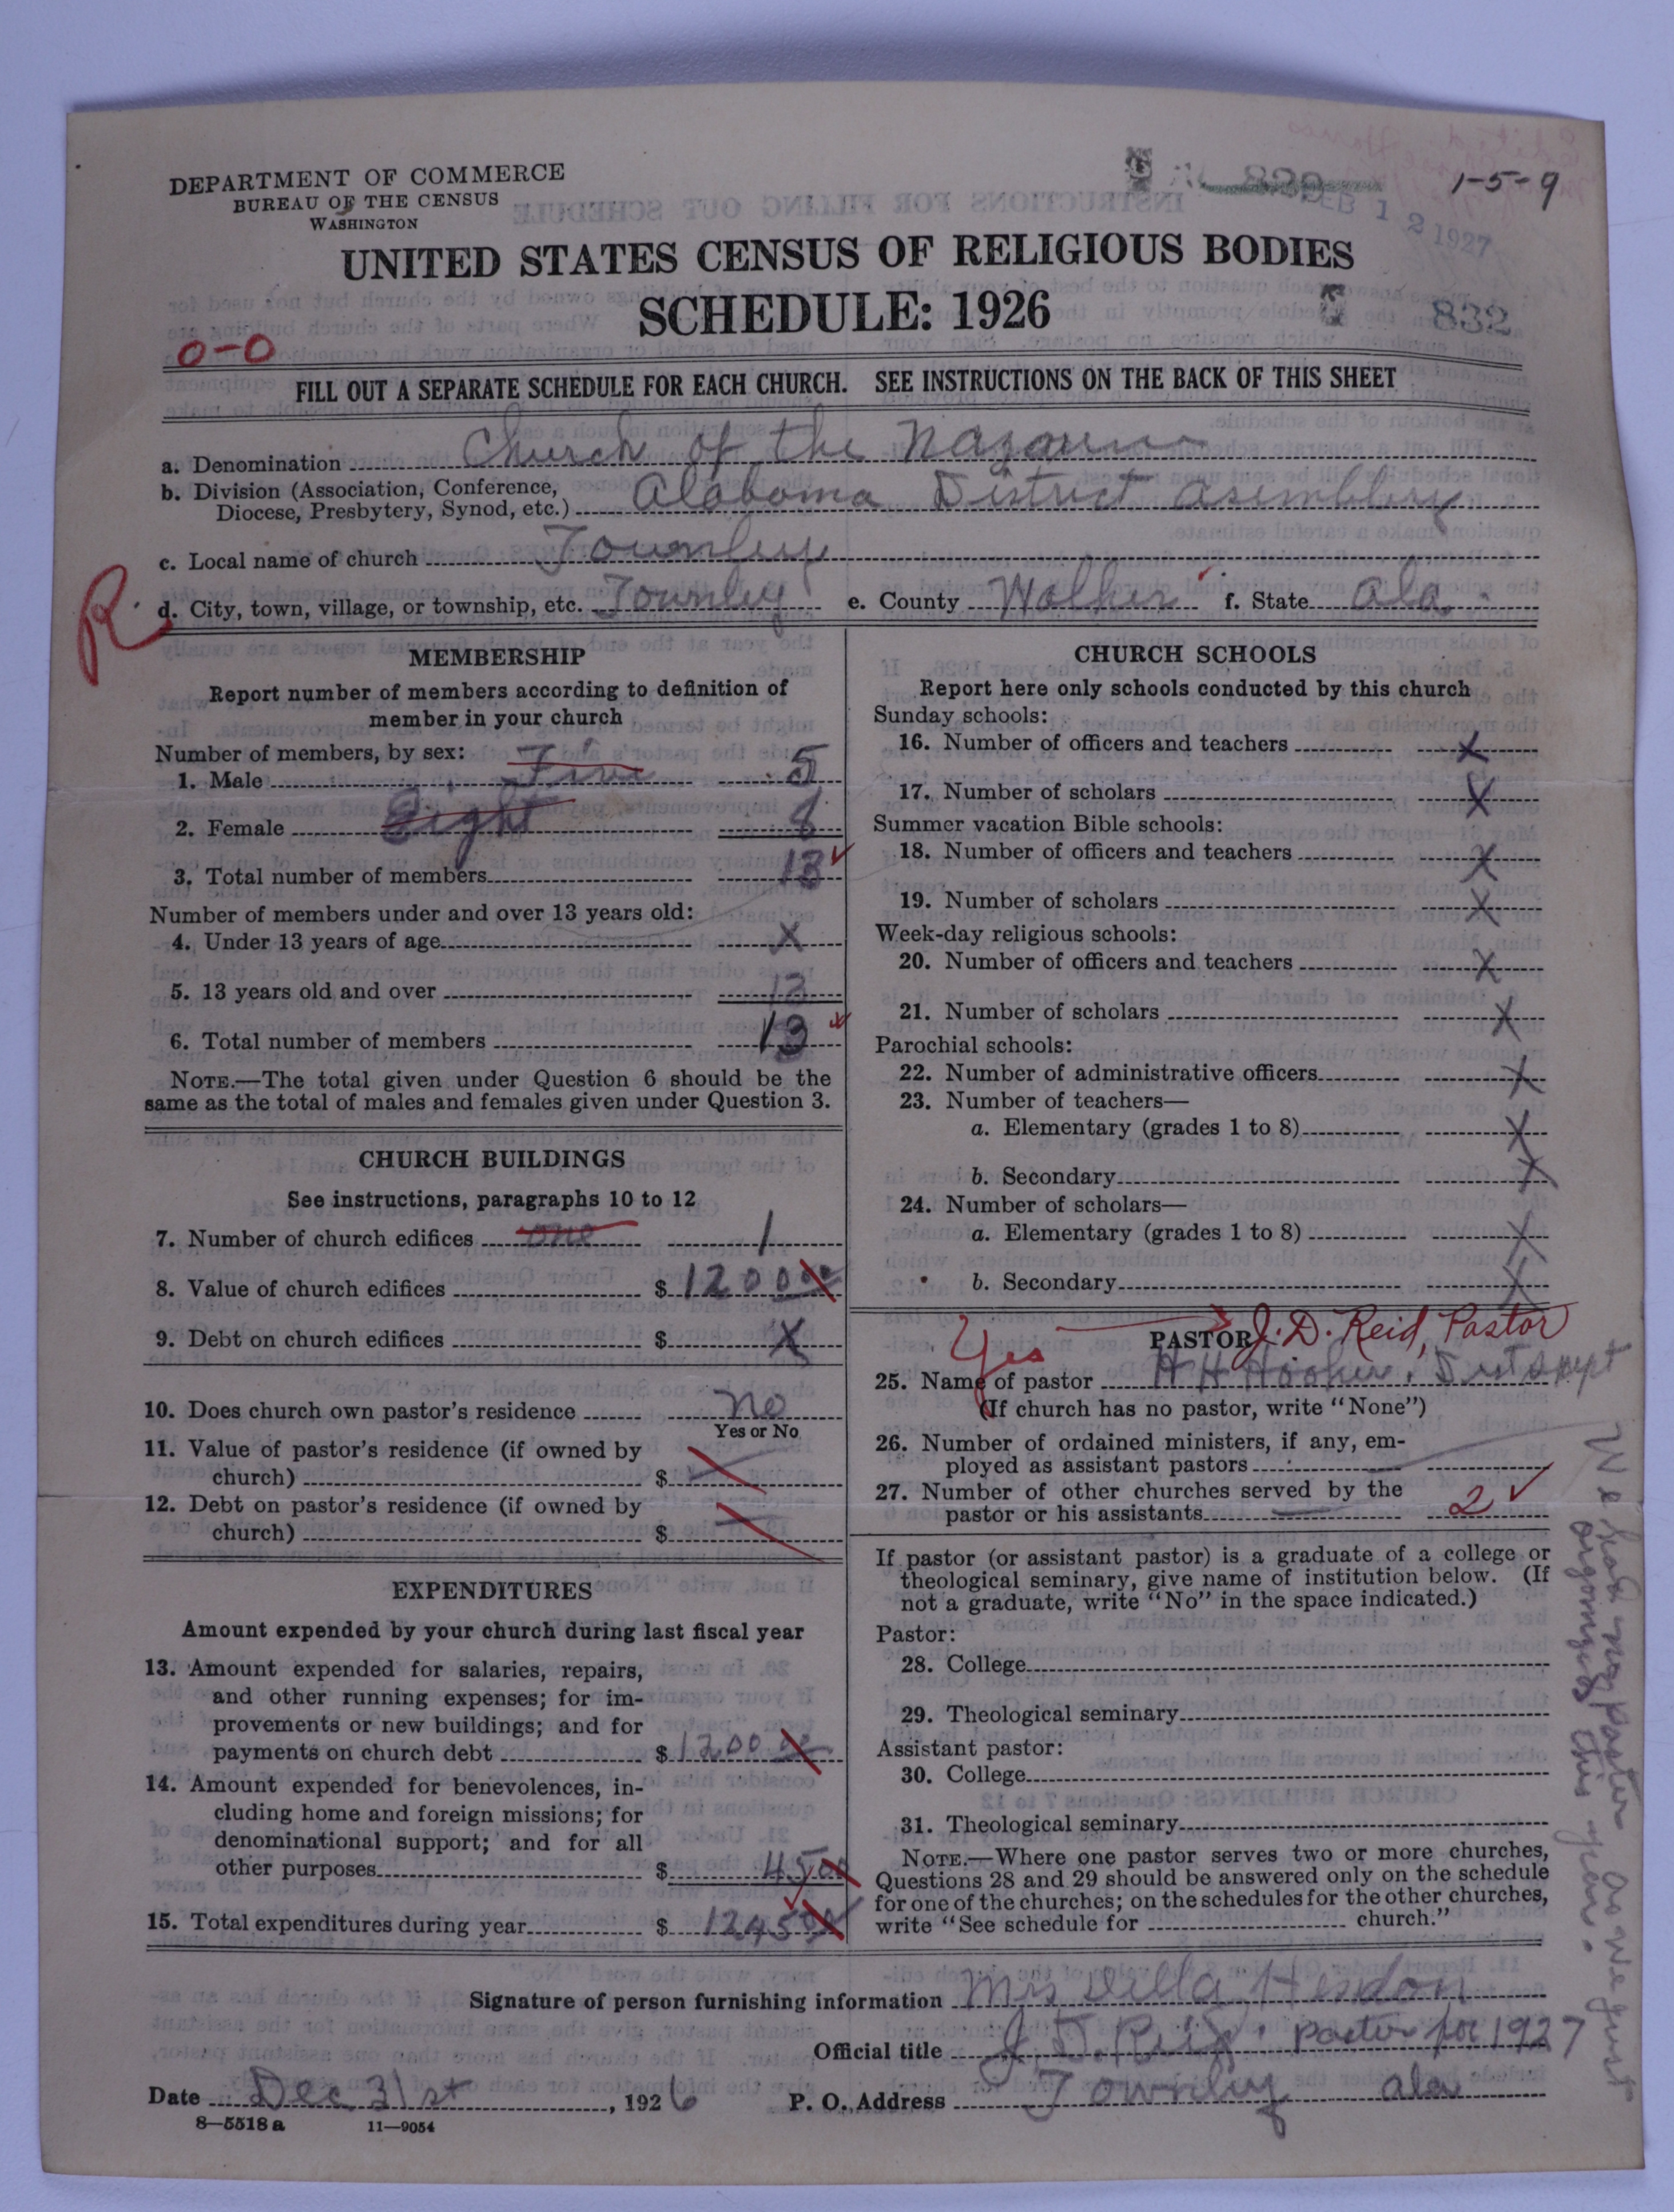 DEPARTMENT OF COMMERCE
BUREAU OF THE CENSUS
WASHINGTON
1-5-9
FEB 12 1927
UNITED STATES CENSUS OF RELIGIOUS BODIES
SCHEDULE: 1926
832
0-0
FILL OUT A SEPARATE SCHEDULE FOR EACH CHURCH. SEE INSTRUCTIONS ON THE BACK OF THIS SHEET
a. Denomination Church of the
b. Division (Association, Conference,
Diocese, Presbytery, Synod, etc.) Alabama District Asemblby
c. Local name of church Townley
R.
d. City, town, village, or township, etc. Townley e. County Walker f. State Ala.
MEMBERSHIP
Report number of members according to definition of
member in your church
Number of members, by sex:
1. Male Five 5
2. Female Eight 8
3. Total number of members 13
Number of members under and over 13 years old:
4. Under 13 years of age X
5. 13 years old and over 13
6. Total number of members 13
NOTE.—The total given under Question 6 should be the
same as the total of males and females given under Question 3.
CHURCH BUILDINGS
See instructions, paragraphs 10 to 12
7. Number of church edifices one 1
8. Value of church edifices $ 1200 00
9. Debt on church edifices $ X
10. Does church own pastor's residence no
Yes or No
11. Value of pastor's residence (if owned by
church) $
12. Debt on pastor's residence (if owned by
church) $
EXPENDITURES
Amount expended by your church during last fiscal year
13. Amount expended for salaries, repairs,
and other running expenses; for im-
provements or new buildings; and for
payments on church debt $ 1200 00
14. Amount expended for benevolences, in-
cluding home and foreign missions; for
denominational support; and for all
other purposes $ 45 00
15. Total expenditures during year $ 1245 00
CHURCH SCHOOLS
Report here only schools conducted by this church
Sunday schools:
16. Number of officers and teachers X
17. Number of scholars X
Summer vacation Bible schools:
18. Number of officers and teachers X
19. Number of scholars X
Week-day religious schools:
20. Number of officers and teachers X
21. Number of scholars X
Parochial schools:
22. Number of administrative officers X
23. Number of teachers—
a. Elementary (grades 1 to 8) X
b. Secondary X
24. Number of scholars—
a. Elementary (grades 1 to 8) X
b. Secondary X
Yes PASTOR J. D. Reid, Pastor
25. Name of pastor H H Hooker, Dist supt
(If church has no pastor, write "None")
26. Number of ordained ministers, if any, em-
ployed as assistant pastors
27. Number of other churches served by the
pastor or his assistants 2
If pastor (or assistant pastor) is a graduate of a college or
theological seminary, give name of institution below. (If
not a graduate, write "No" in the space indicated.)
Pastor:
28. College
29. Theological seminary
Assistant pastor:
30. College
31. Theological seminary
NOTE.—Where one pastor serves two or more churches,
Questions 28 and 29 should be answered only on the schedule
for one of the churches; on the schedules for the other churches,
write "See schedule for church."
We had no pastor as we just
organized this year.
Signature of person furnishing information Mrs Della
Official title J. D. Reid, pastor for 1927
Date Dec 31st, 1926 P. O. Address Townley ala
8—5518 a 11—9054